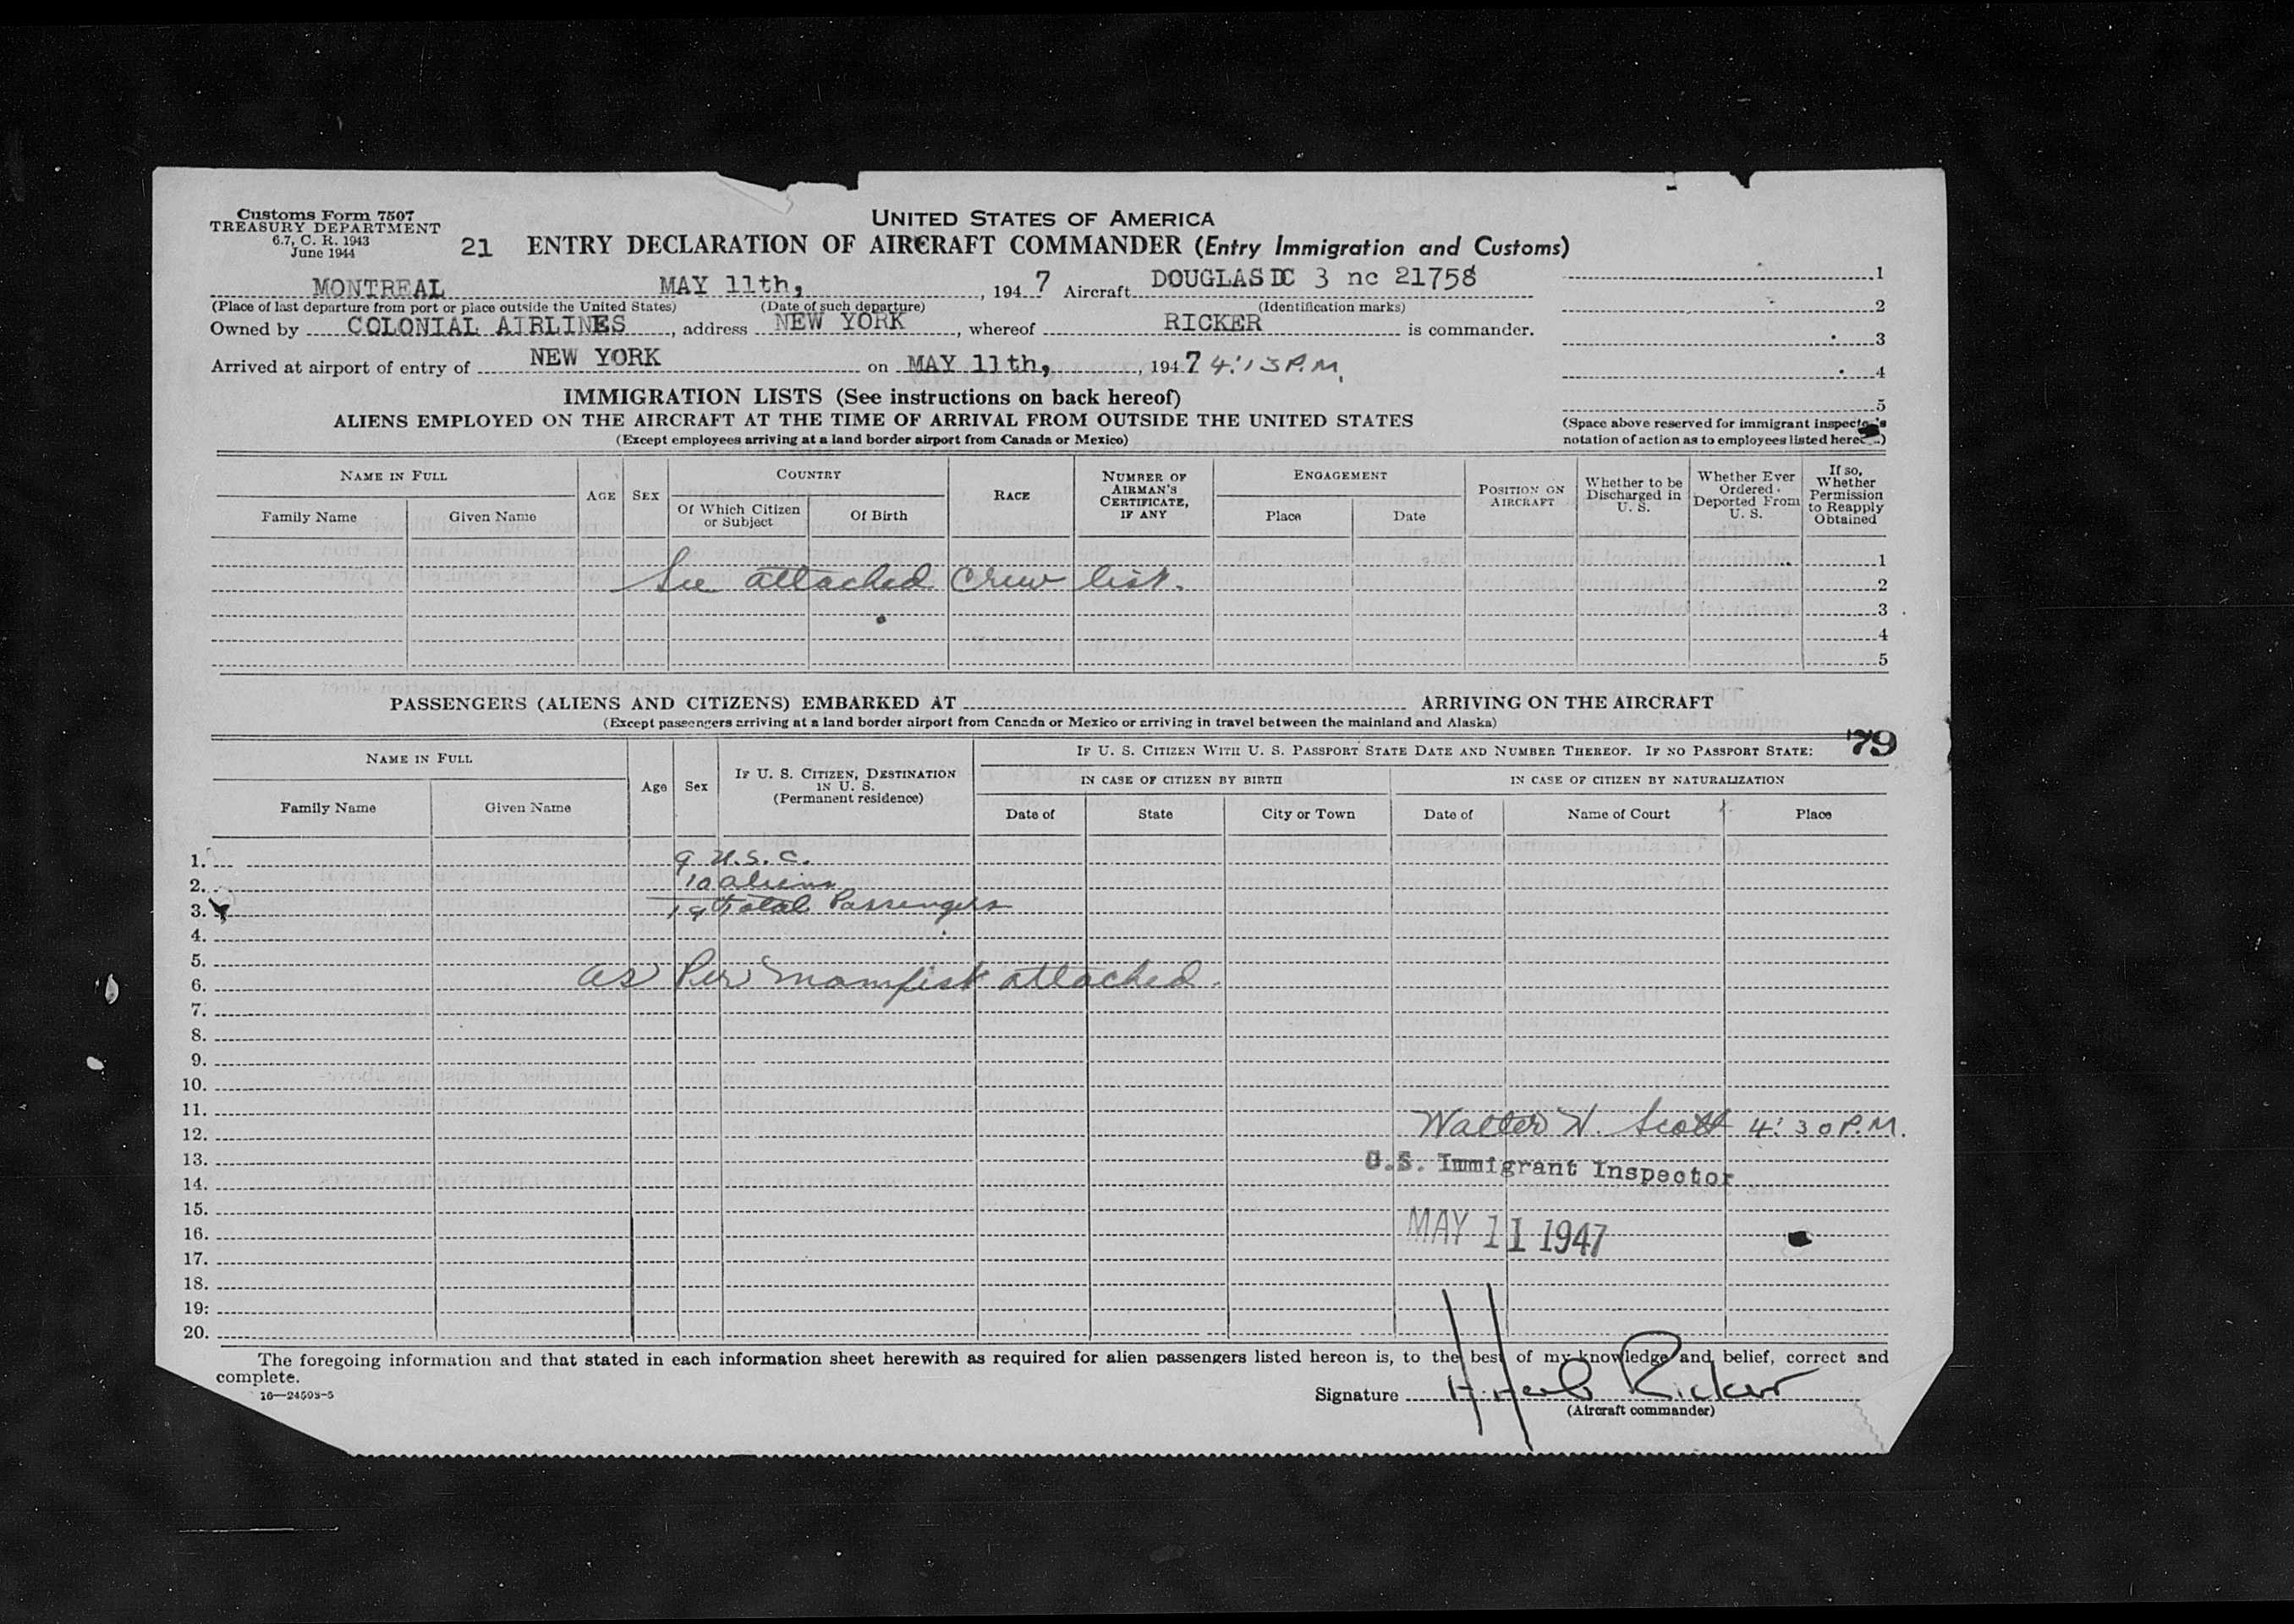 Customs Form 7507
TREASURY DEPARTMENT
6.7, C. R. 1943
June 1944
UNITED STATES OF AMERICA
21 ENTRY DECLARATION OF AIRCRAFT COMMANDER (Entry Immigration and Customs)
MONTREAL MAY 11th, , 194 7 Aircraft DOUGLAS DC 3 nc 21758
(Place of last departure from port or place outside the United States) (Date of such departure) (Identification marks)
Owned by COLONIAL AIRLINES , address NEW YORK , whereof RICKER is commander.
Arrived at airport of entry of NEW YORK on MAY 11th, , 194 7 4:13 P.M.
1
2
3
4
5
(Space above reserved for immigrant inspector's
notation of action as to employees listed hereon.)
IMMIGRATION LISTS (See instructions on back hereof)
ALIENS EMPLOYED ON THE AIRCRAFT AT THE TIME OF ARRIVAL FROM OUTSIDE THE UNITED STATES
(Except employees arriving at a land border airport from Canada or Mexico)
NAME IN FULL
Family Name Given Name
AGE
SEX
COUNTRY
Of Which Citizen or Subject
Of Birth
RACE
NUMBER OF AIRMAN'S CERTIFICATE, IF ANY
ENGAGEMENT
Place Date
POSITION ON AIRCRAFT
Whether to be Discharged in U. S.
Whether Ever Ordered Deported From U. S.
If so, Whether Permission to Reapply Obtained
1
See attached crew list. 2
3
4
5
PASSENGERS (ALIENS AND CITIZENS) EMBARKED AT ARRIVING ON THE AIRCRAFT
(Except passengers arriving at a land border airport from Canada or Mexico or arriving in travel between the mainland and Alaska)
79
NAME IN FULL
Family Name Given Name
Age
Sex
IF U. S. CITIZEN, DESTINATION IN U. S.
(Permanent residence)
IF U. S. CITIZEN WITH U. S. PASSPORT STATE DATE AND NUMBER THEREOF. IF NO PASSPORT STATE:
IN CASE OF CITIZEN BY BIRTH
Date of State City or Town
IN CASE OF CITIZEN BY NATURALIZATION
Date of Name of Court Place
1. 9 U.S.C.
2. 10 aliens
3. 19 Total Passengers
4.
5.
6. as Per manifest attached.
7.
8.
9.
10.
11.
12. Walter W. Scott 4:30 P.M.
13. U.S. Immigrant Inspector
14.
15.
16. MAY 11 1947
17.
18.
19:
20.
The foregoing information and that stated in each information sheet herewith as required for alien passengers listed hereon is, to the best of my knowledge and belief, correct and
complete.
16—24593-5
Signature H. Herb Ricker
(Aircraft commander)